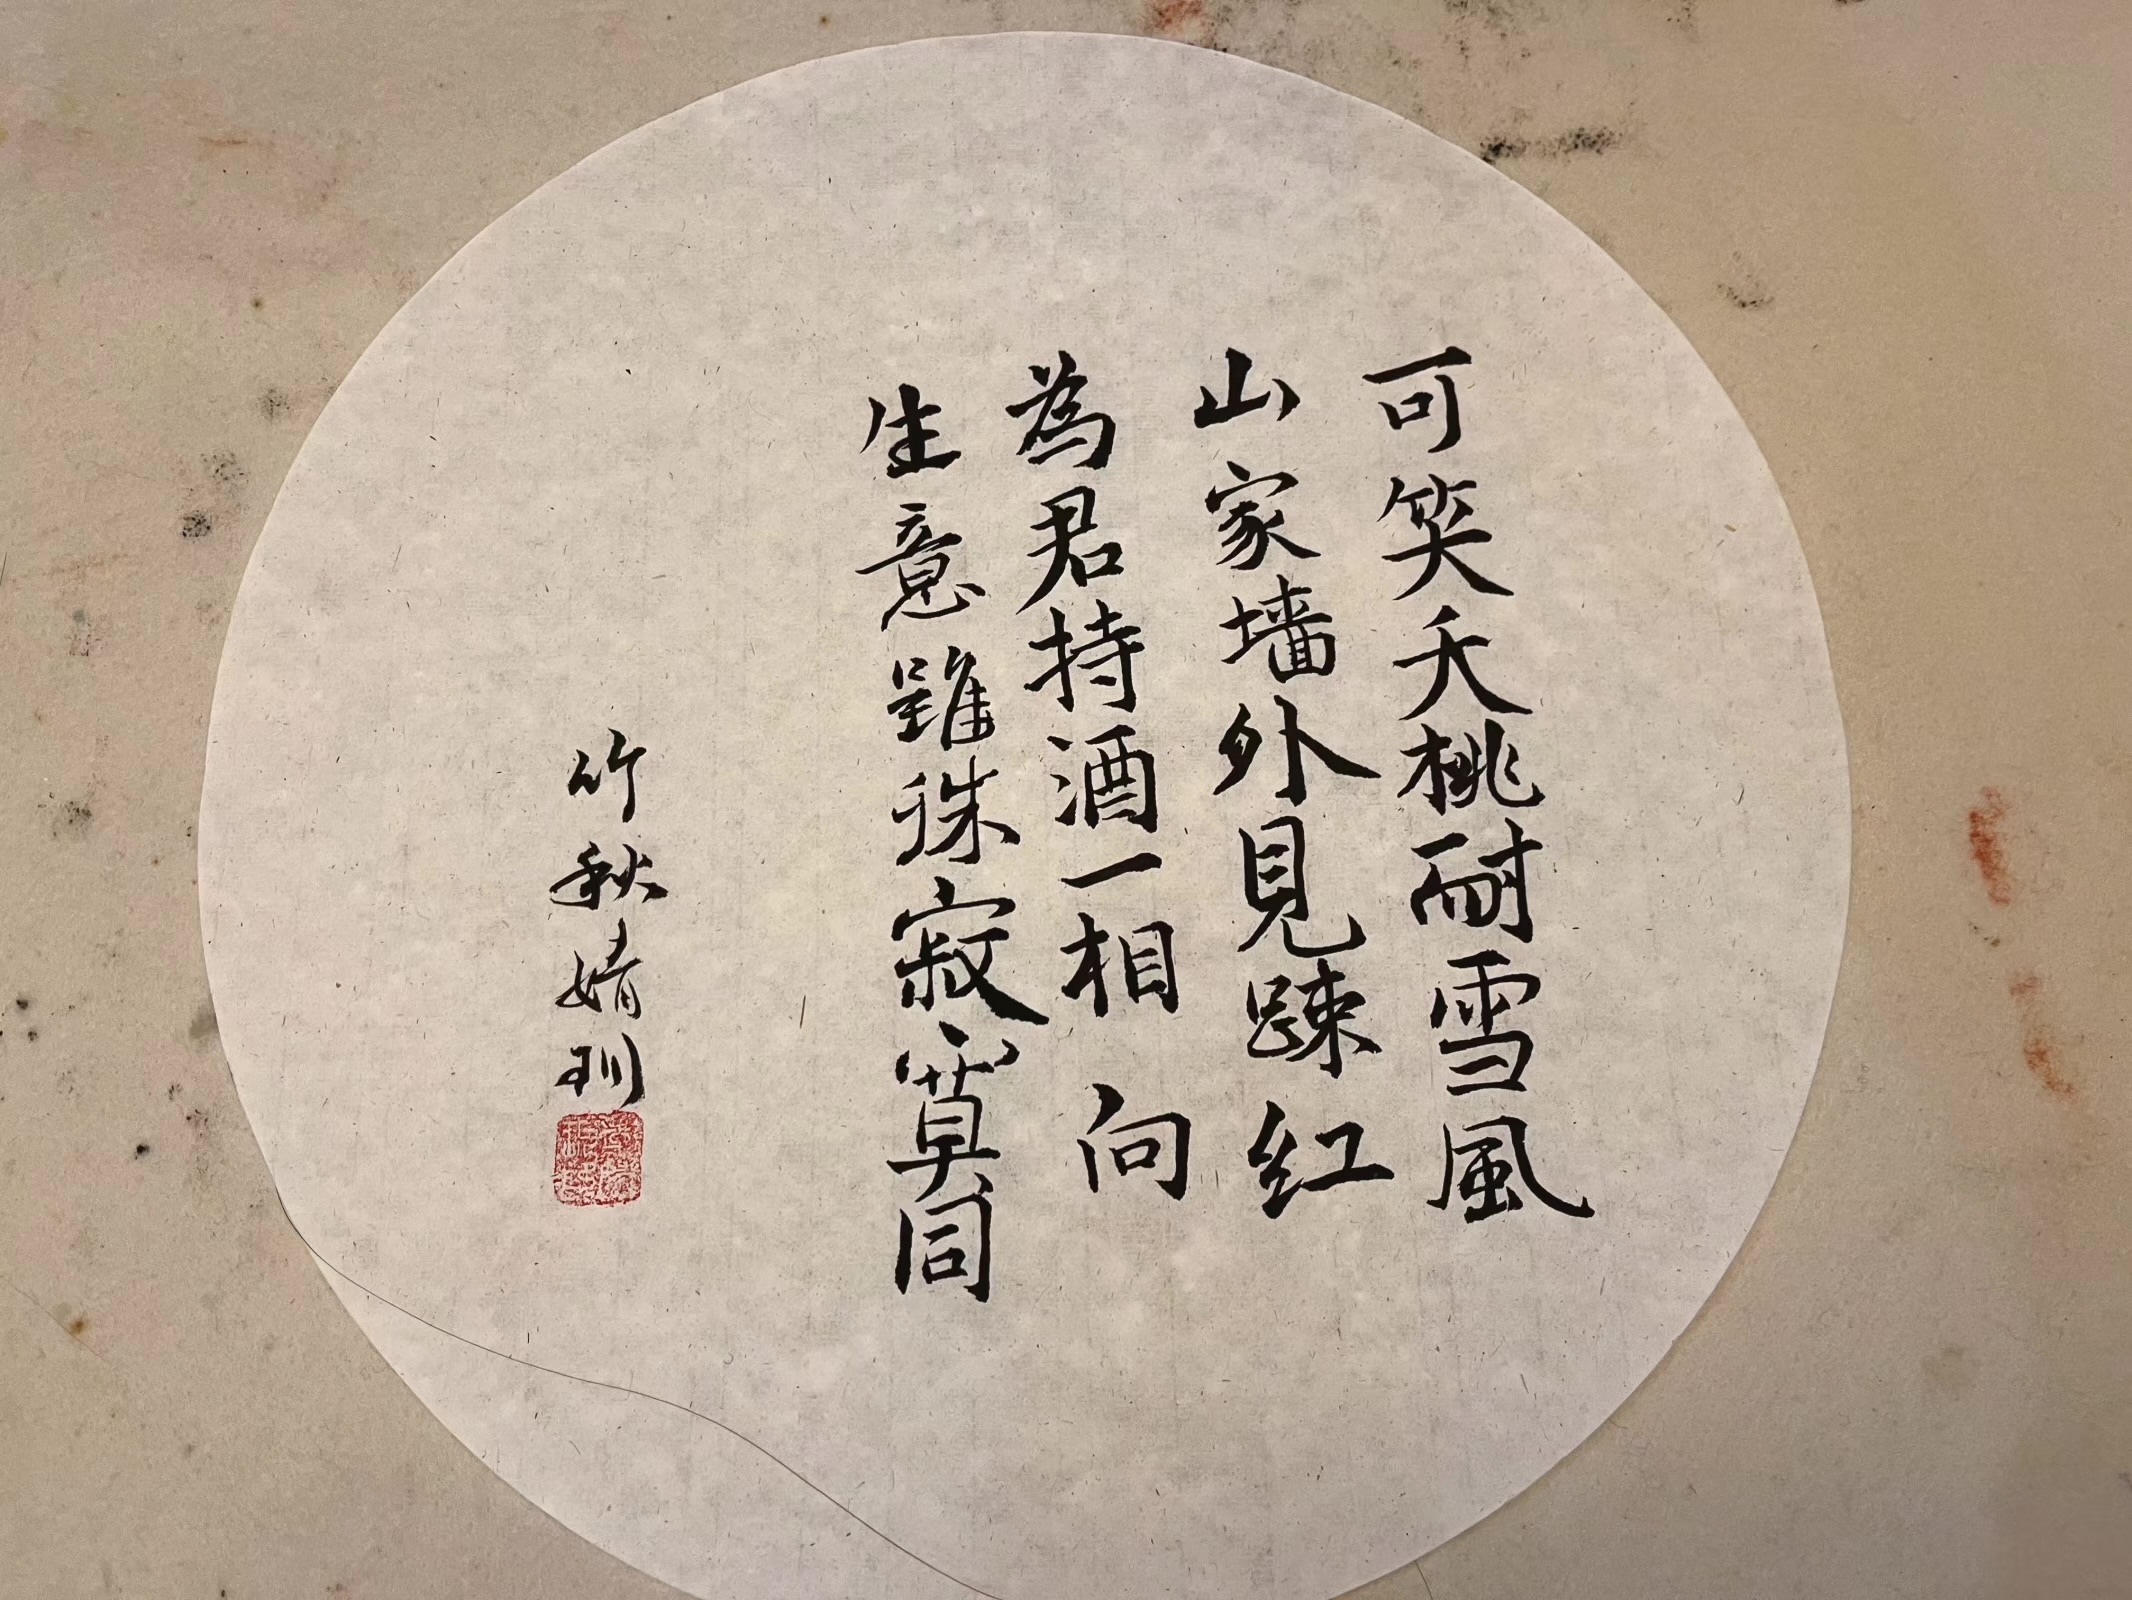 可笑夭桃耐雪風
山家墙外見踈红
為君持酒一相向
生意雖殊寂寞同
竹秋婧玔